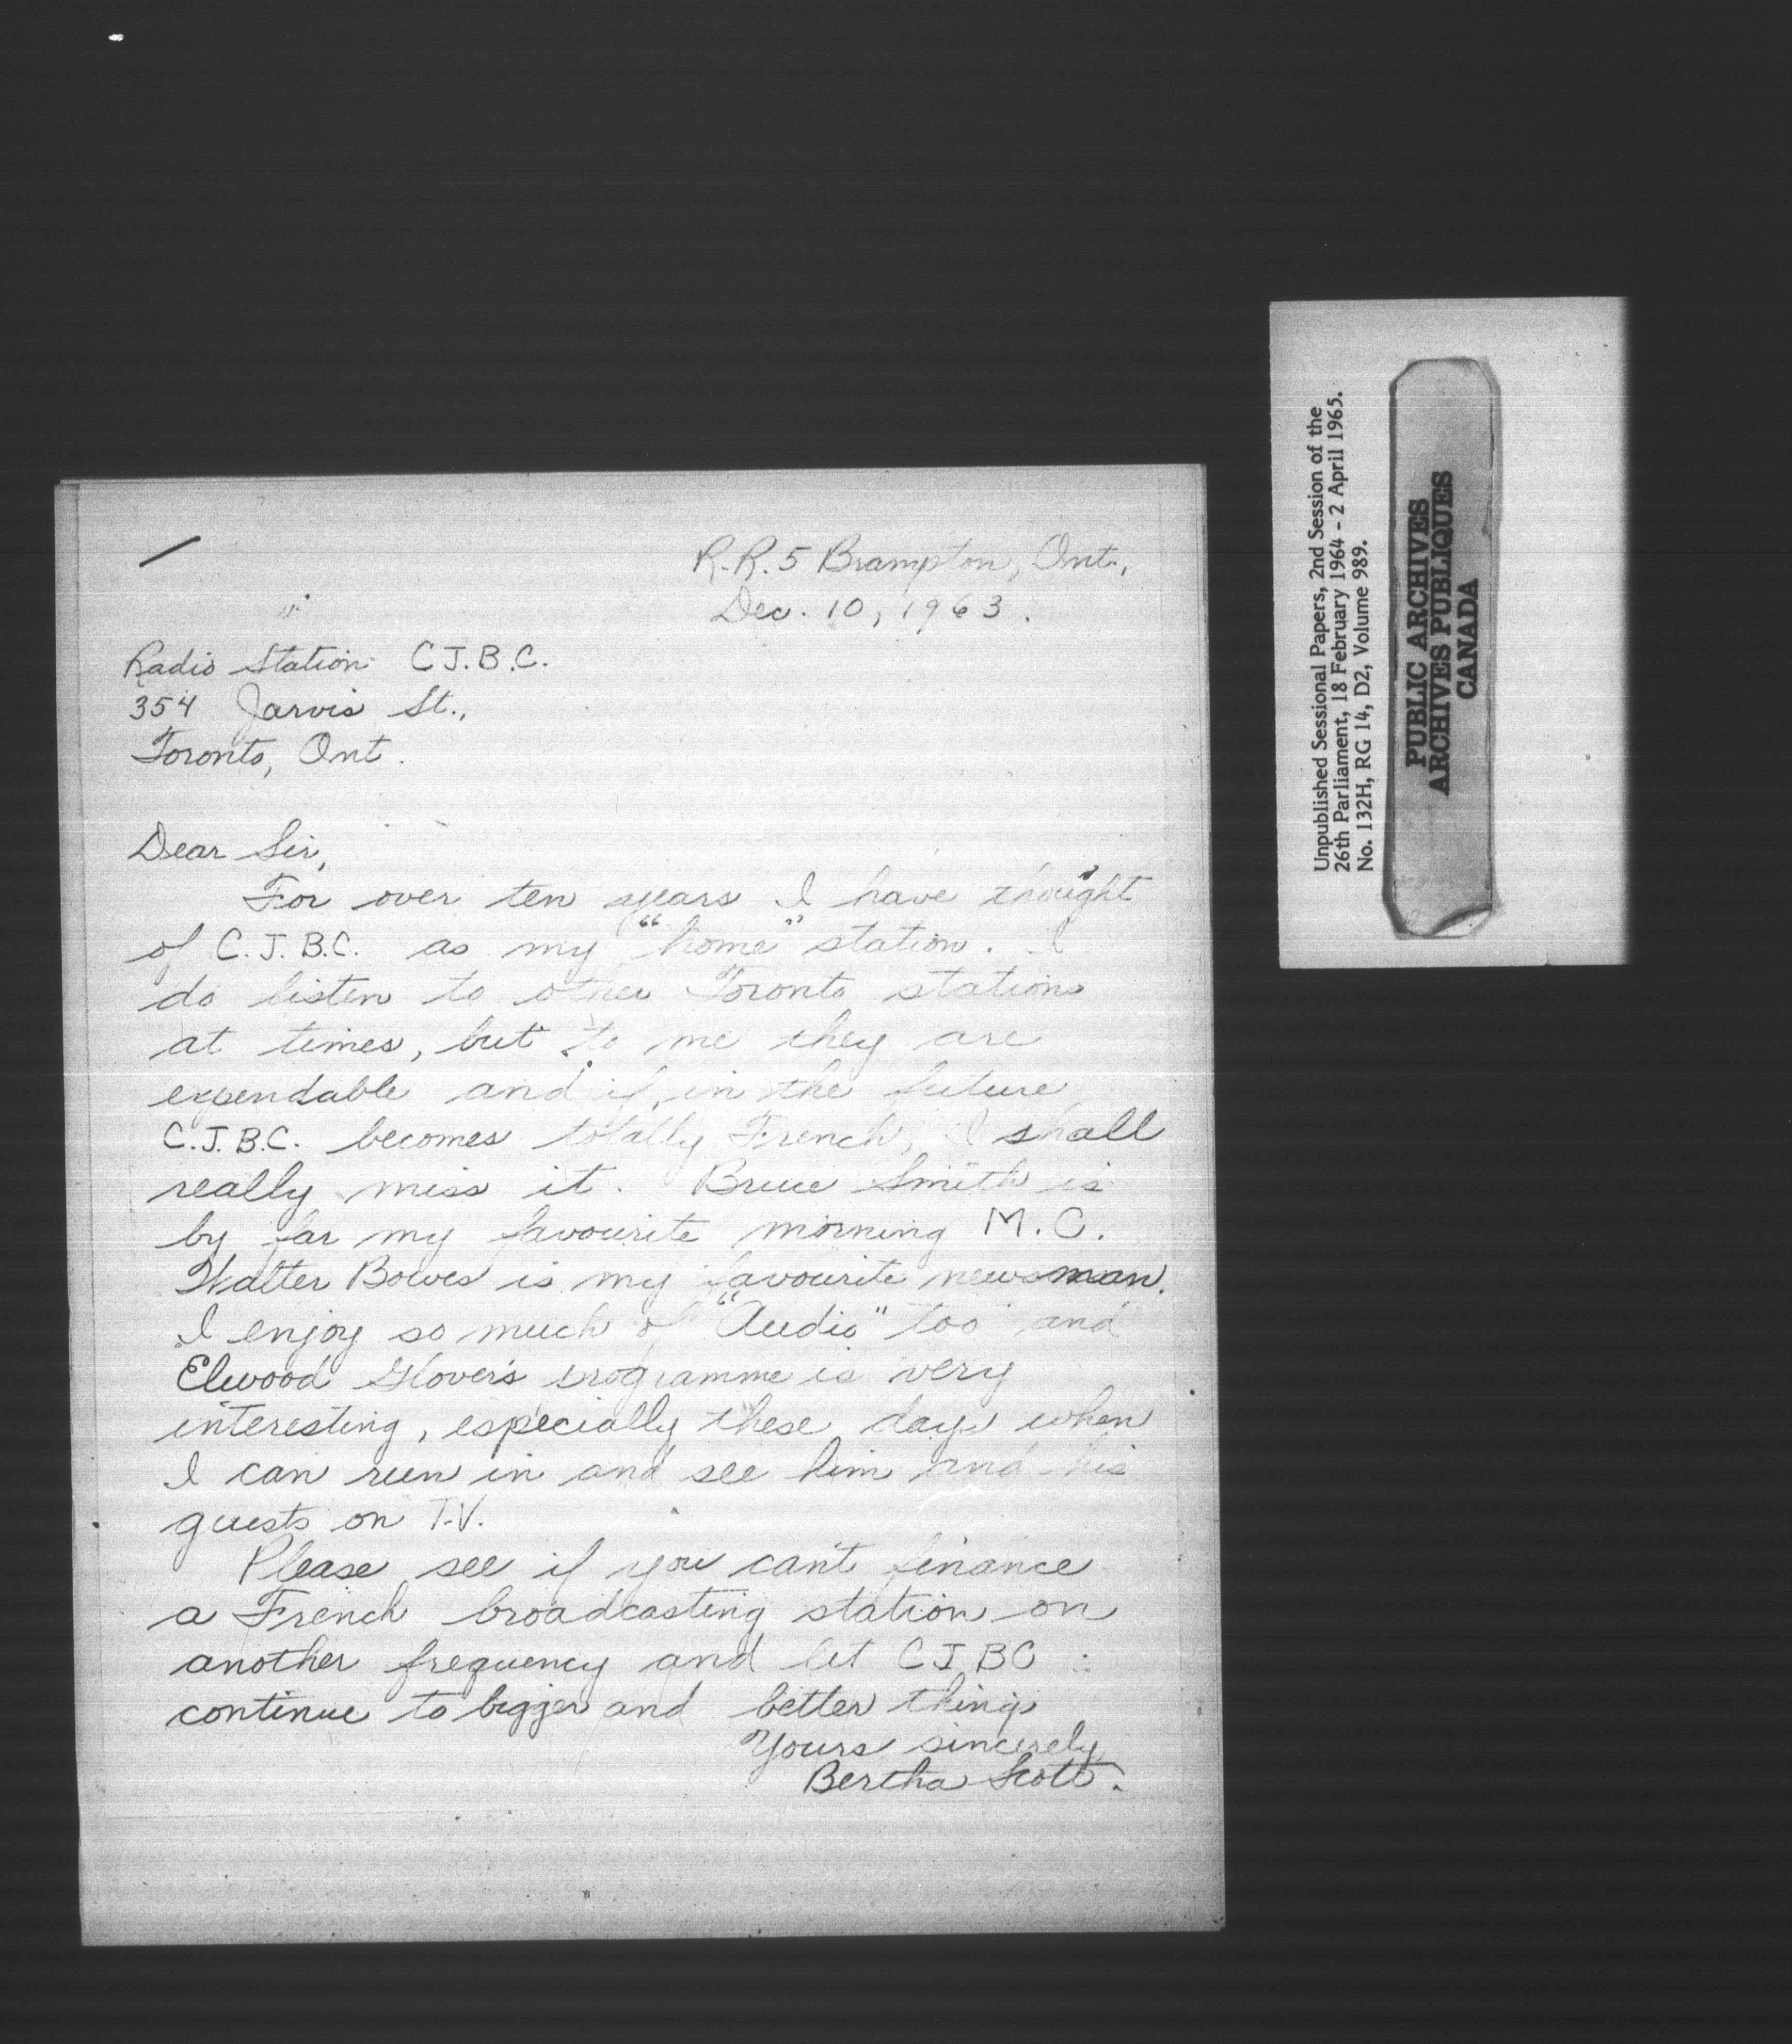 R.R.5 Brampton, Ont.,
Dec. 10, 1963.
Radio Station C J.B.C.
354 Jarvis St.,
Toronto, Ont.
Dear Sir,
For over ten years I have thought
of C.J.B.C. as my "home" station. I
do listen to other Toronto stations
at times, but to me they are
expendable and if, in the future
C.J.B.C. becomes totally French, I shall
really miss it. Bruce Smith is
by far my favourite morning M.C.
Walter Bowes is my favourite newsman.
I enjoy so much of "Audio" too and
Elwood Glover's programme is very
interesting, especially these days when
I can run in and see him and his
guests on T.V.
Please see if you can't finance
a French broadcasting station on
another frequency and let CJBC
continue to bigger and better things
Yours sincerely
Bertha Scott.
Unpublished Sessional Papers, 2nd Session of the
26th Parliament, 18 February 1964 - 2 April 1965.
No. 132H, RG 14, D2, Volume 989.
PUBLIC ARCHIVES
ARCHIVES PUBLIQUES
CANADA